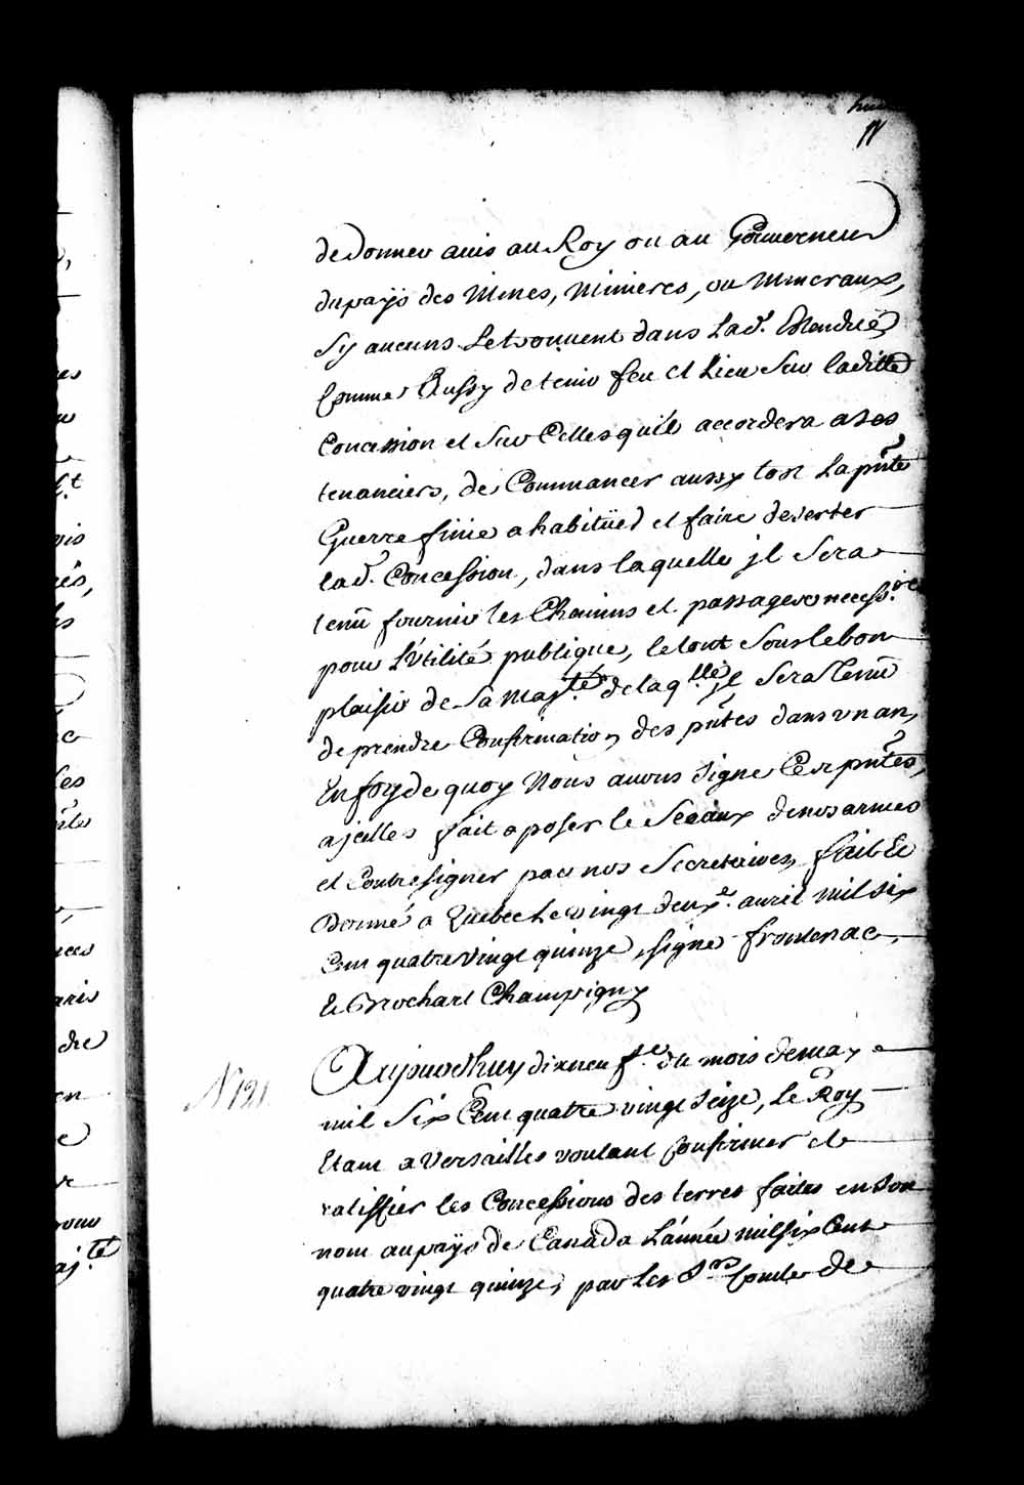 de Donner avis au Roy ou au Gouverneur
du païs des Mines, Minieres, ou Mineraux,
Sy aucuns Setrouvent dans Lad.e Etendüe
Comme Aussy de tenir feu et Lieu Sur laditte
Concession et Sur Celles qu'il accordera a Ses
tenanciers, de Commancer aussy tost La pñte
Guerre finie a habitüer et faire deserter
lad.e Concession, dans laquelle jl Sera
tenü fournir les Chemins et passages necess.res
pour L'Utilité publique, le tout Sous le bon
plaisir de Sa Maj.té de laq.lle jl Sera Tenü
de prendre Confirmation des pñtes dans un an,
En foy de quoy Nous avons Signé Ces pñtes,
a jcelles fait aposer le Sceaux de nos armes
et Contresigner par nos Secretaires, fait Et
Donné a Quebec Le vingt deux.e avril mil six
Cent quatre vingt quinze, signé frontenac,
Et Bochart Champigny
N 121
Aujourd'huy dixneuf.e du mois de may
mil Six Cent quatre vingt Seize, Le Roy
Etant a Versailles voulant Confirmer et
ratiffier les Concessions des terres faites en Son
nom au païs de Canada L'année mil six Cent
quatre vingt quinze, par Les S.rs Comte de